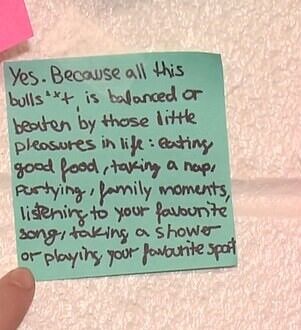 Yes. Because all this
bulls*xt, is balanced or
beaten by those little
pleasures in life: eating
good food, taking a nap,
partying, family moments,
listening to your favourite
song, taking a shower
or playing your favourite spot